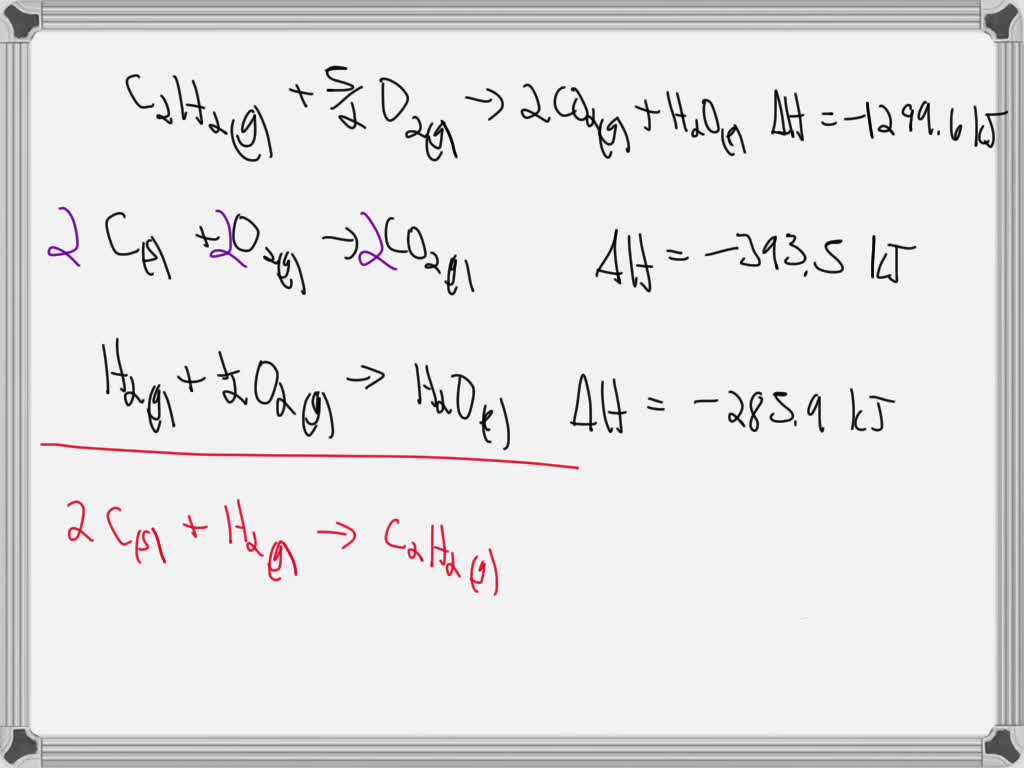 C₂H₂(g) + 5/2 O₂(g) → 2CO₂(g) + H₂O(l) ΔH = -1299.6 kJ
2 C(s) + 2O₂(g) → 2CO₂(g) ΔH = -393.5 kJ
H₂(g) + ½O₂(g) → H₂O(l) ΔH = -285.9 kJ
2 C(s) + H₂(g) → C₂H₂(g)